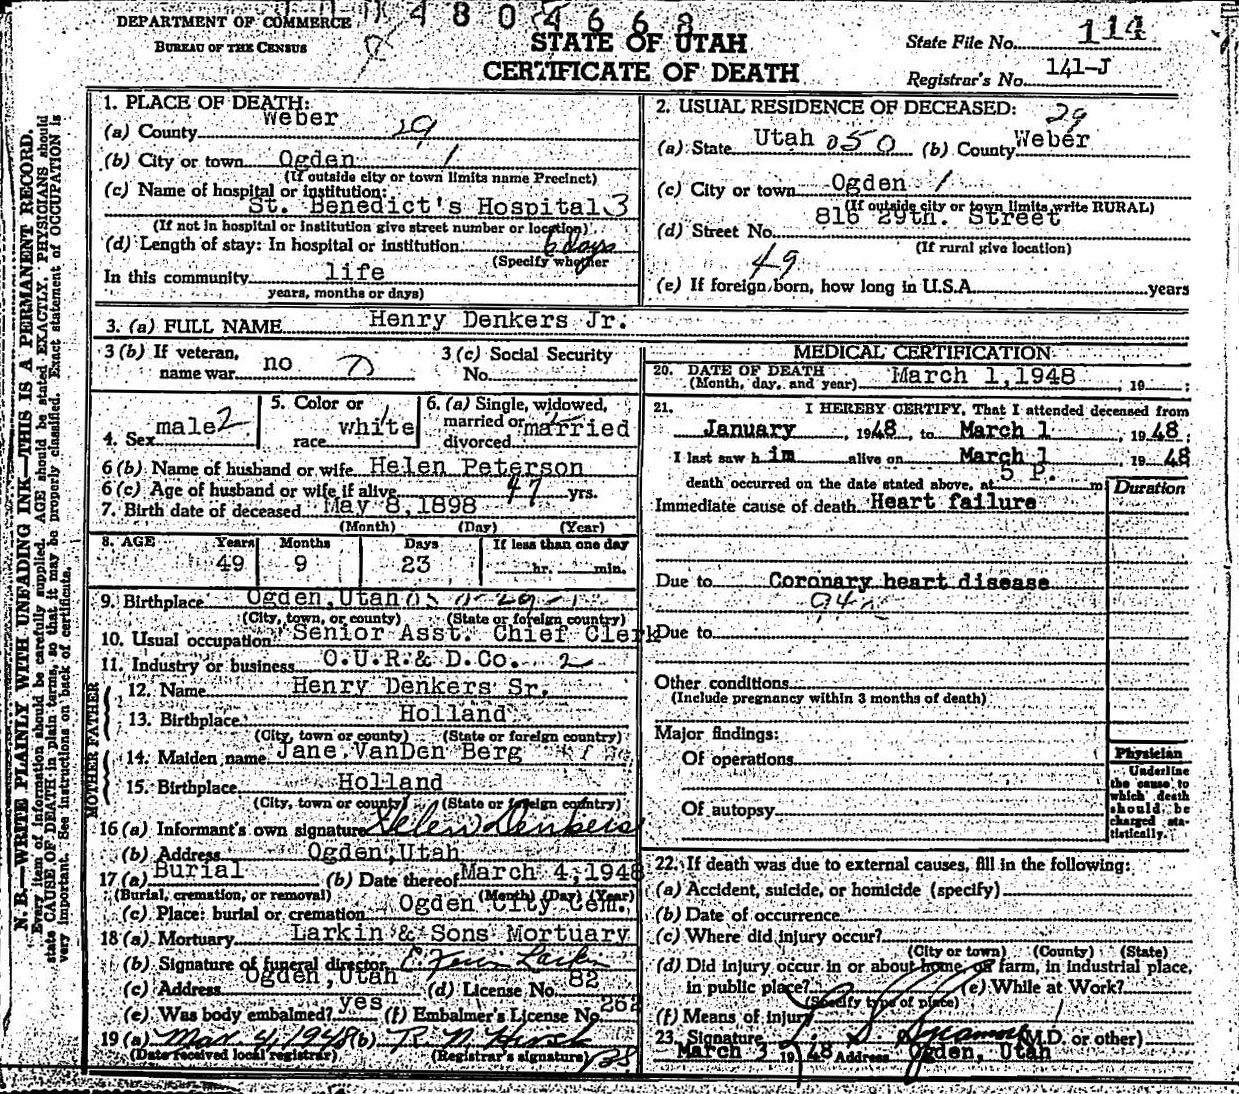 4 8 0 4 6 6 8
DEPARTMENT OF COMMERCE
BUREAU OF THE CENSUS
STATE OF UTAH
CERTIFICATE OF DEATH
State File No. 114
Registrar's No. 141-J
N. B.—WRITE PLAINLY WITH UNFADING INK—THIS IS A PERMANENT RECORD.
Every item of information should be carefully supplied. AGE should be stated EXACTLY. PHYSICIANS should
state CAUSE OF DEATH in plain terms, so that it may be properly classified. Exact statement of OCCUPATION is
very important. See instructions on back of certificate.
1. PLACE OF DEATH:
(a) County Weber 29
(b) City or town Ogden 1
(If outside city or town limits name Precinct)
(c) Name of hospital or institution:
St. Benedict's Hospital 3
(If not in hospital or institution give street number or location)
(d) Length of stay: In hospital or institution 6 days
(Specify whether
In this community life
years, months or days)
2. USUAL RESIDENCE OF DECEASED:
29
(a) State Utah 050 (b) County Weber
(c) City or town Ogden 1
(If outside city or town limits write RURAL)
(d) Street No. 816 29th. Street
(If rural give location)
49
(e) If foreign born, how long in U.S.A. years
3. (a) FULL NAME Henry Denkers Jr.
3 (b) If veteran,
name war no
3 (c) Social Security
No.
4. Sex male 2
5. Color or
race white 1
6. (a) Single, widowed,
married or
divorced married
6 (b) Name of husband or wife Helen Peterson
6 (c) Age of husband or wife if alive 47 yrs.
7. Birth date of deceased May 8, 1898
(Month) (Day) (Year)
8. AGE Years Months Days If less than one day
49 9 23 hr. min.
9. Birthplace Ogden, Utah
(City, town, or county) (State or foreign country)
10. Usual occupation Senior Asst. Chief Clerk
11. Industry or business O.U.R.& D.Co. 2
FATHER
12. Name Henry Denkers Sr.
13. Birthplace Holland
(City, town or county) (State or foreign country)
MOTHER
14. Maiden name Jane VanDen Berg
15. Birthplace Holland
(City, town or county) (State or foreign country)
16 (a) Informant's own signature Helen Denkers
(b) Address Ogden, Utah
17 (a) Burial (b) Date thereof March 4, 1948
(Burial, cremation, or removal) (Month) (Day) (Year)
(c) Place: burial or cremation Ogden City Cem.
18 (a) Mortuary Larkin & Sons Mortuary
(b) Signature of funeral director Larkin
(c) Address Ogden, Utah (d) License No. 82
(e) Was body embalmed? yes (f) Embalmer's License No. 262
19 (a) Mar 4, 1948 (b)
(Date received local registrar) (Registrar's signature)
MEDICAL CERTIFICATION
20. DATE OF DEATH
(Month, day, and year) March 1, 1948, 19 ;
21. I HEREBY CERTIFY, That I attended deceased from
January, 1948, to March 1, 1948;
I last saw him alive on March 1, 1948
death occurred on the date stated above, at 5 P. m
Duration
Immediate cause of death Heart failure
Due to Coronary heart disease
Due to
Other conditions
(Include pregnancy within 3 months of death)
Major findings:
Of operations
Of autopsy
Physician
Underline
the cause to
which death
should be
charged sta-
tistically.
22. If death was due to external causes, fill in the following:
(a) Accident, suicide, or homicide (specify)
(b) Date of occurrence
(c) Where did injury occur?
(City or town) (County) (State)
(d) Did injury occur in or about home, on farm, in industrial place,
in public place? (e) While at Work?
(Specify type of place)
(f) Means of injury
23. Signature (M.D. or other)
March 3 19 48 Address Ogden, Utah